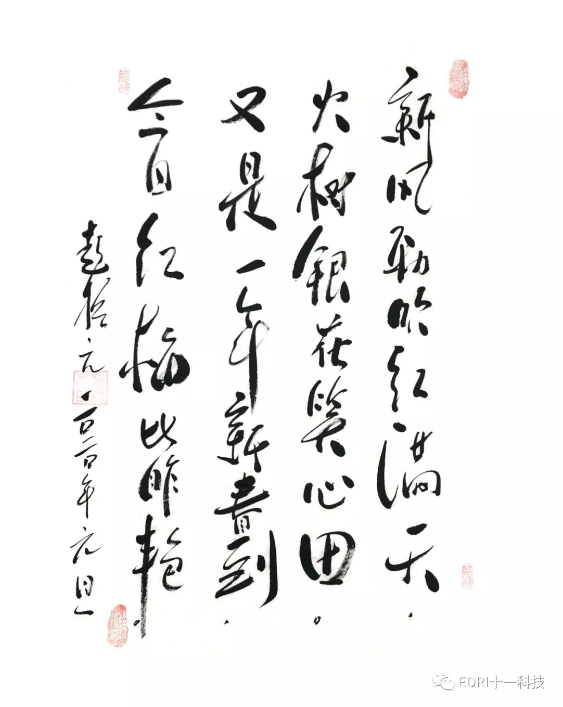 新风劲吹红满天，
火树银花笑心田。
又是一年新春到，
今日红梅比昨艳。
赵振元 二〇二〇年元旦
EDRI十一科技